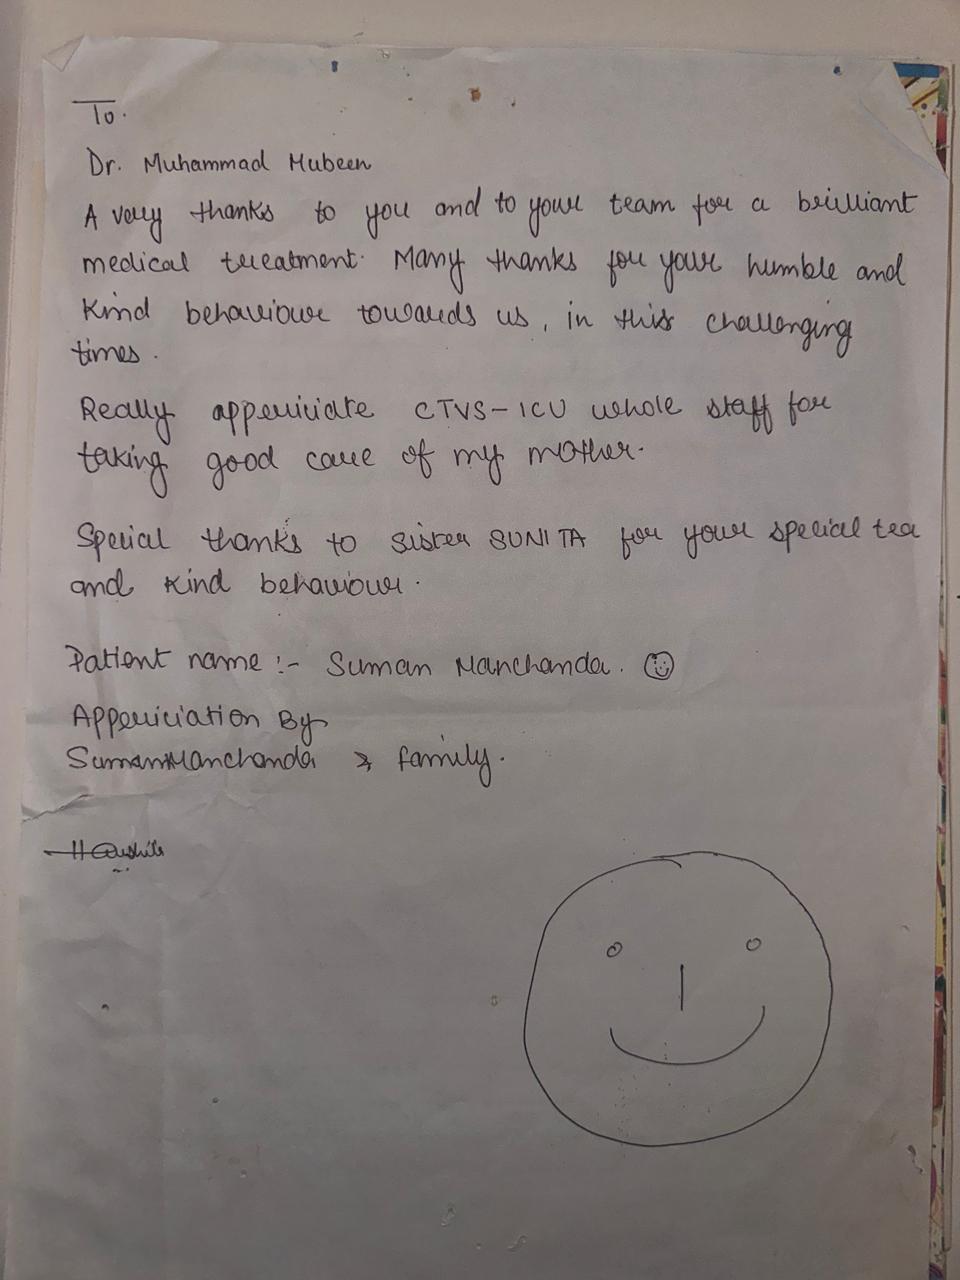 To.
Dr. Muhammad Mubeen
A very thanks to you and to your team for a brilliant
medical treatment. Many thanks for your humble and
Kind behaviour towards us, in this challenging
times.
Really appericiate CTVS-ICU whole staff for
taking good care of my mother.
Special thanks to Sister SUNITA for your special tea
and kind behaviour.
Patient name :- Suman Manchanda. ☺
Appericiation By
Suman Manchanda & family.